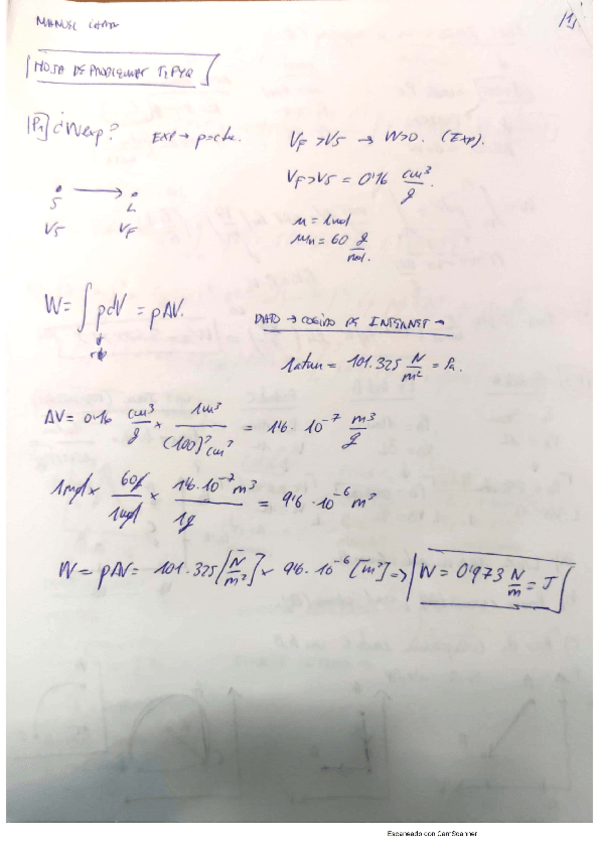 1/1
HOJA DE PROBLEMAS T1 FYQ
P1 ¿Wexp? EXP → p=cte. VF > VS → W>0. (Exp).
VF > VS = 0'16 cm³/g.
S L
VS VF
n = 1mol
Mm = 60 g/mol.
W = ∫ p dV = pΔV.
cte
DATO → COGIDO DE INTERNET →
1atm = 101.325 N/m² = Pa.
ΔV = 0'16 cm³/g × 1m³/(100)³cm³ = 1'6 · 10⁻⁷ m³/g
1mol × 60g/1mol × 1'6·10⁻⁷m³/1g = 9'6 · 10⁻⁶ m³
W = pΔV = 101.325 [N/m²] × 9'6 · 10⁻⁶ [m³] => W = 0'973 N/m = J
Escaneado con CamScanner